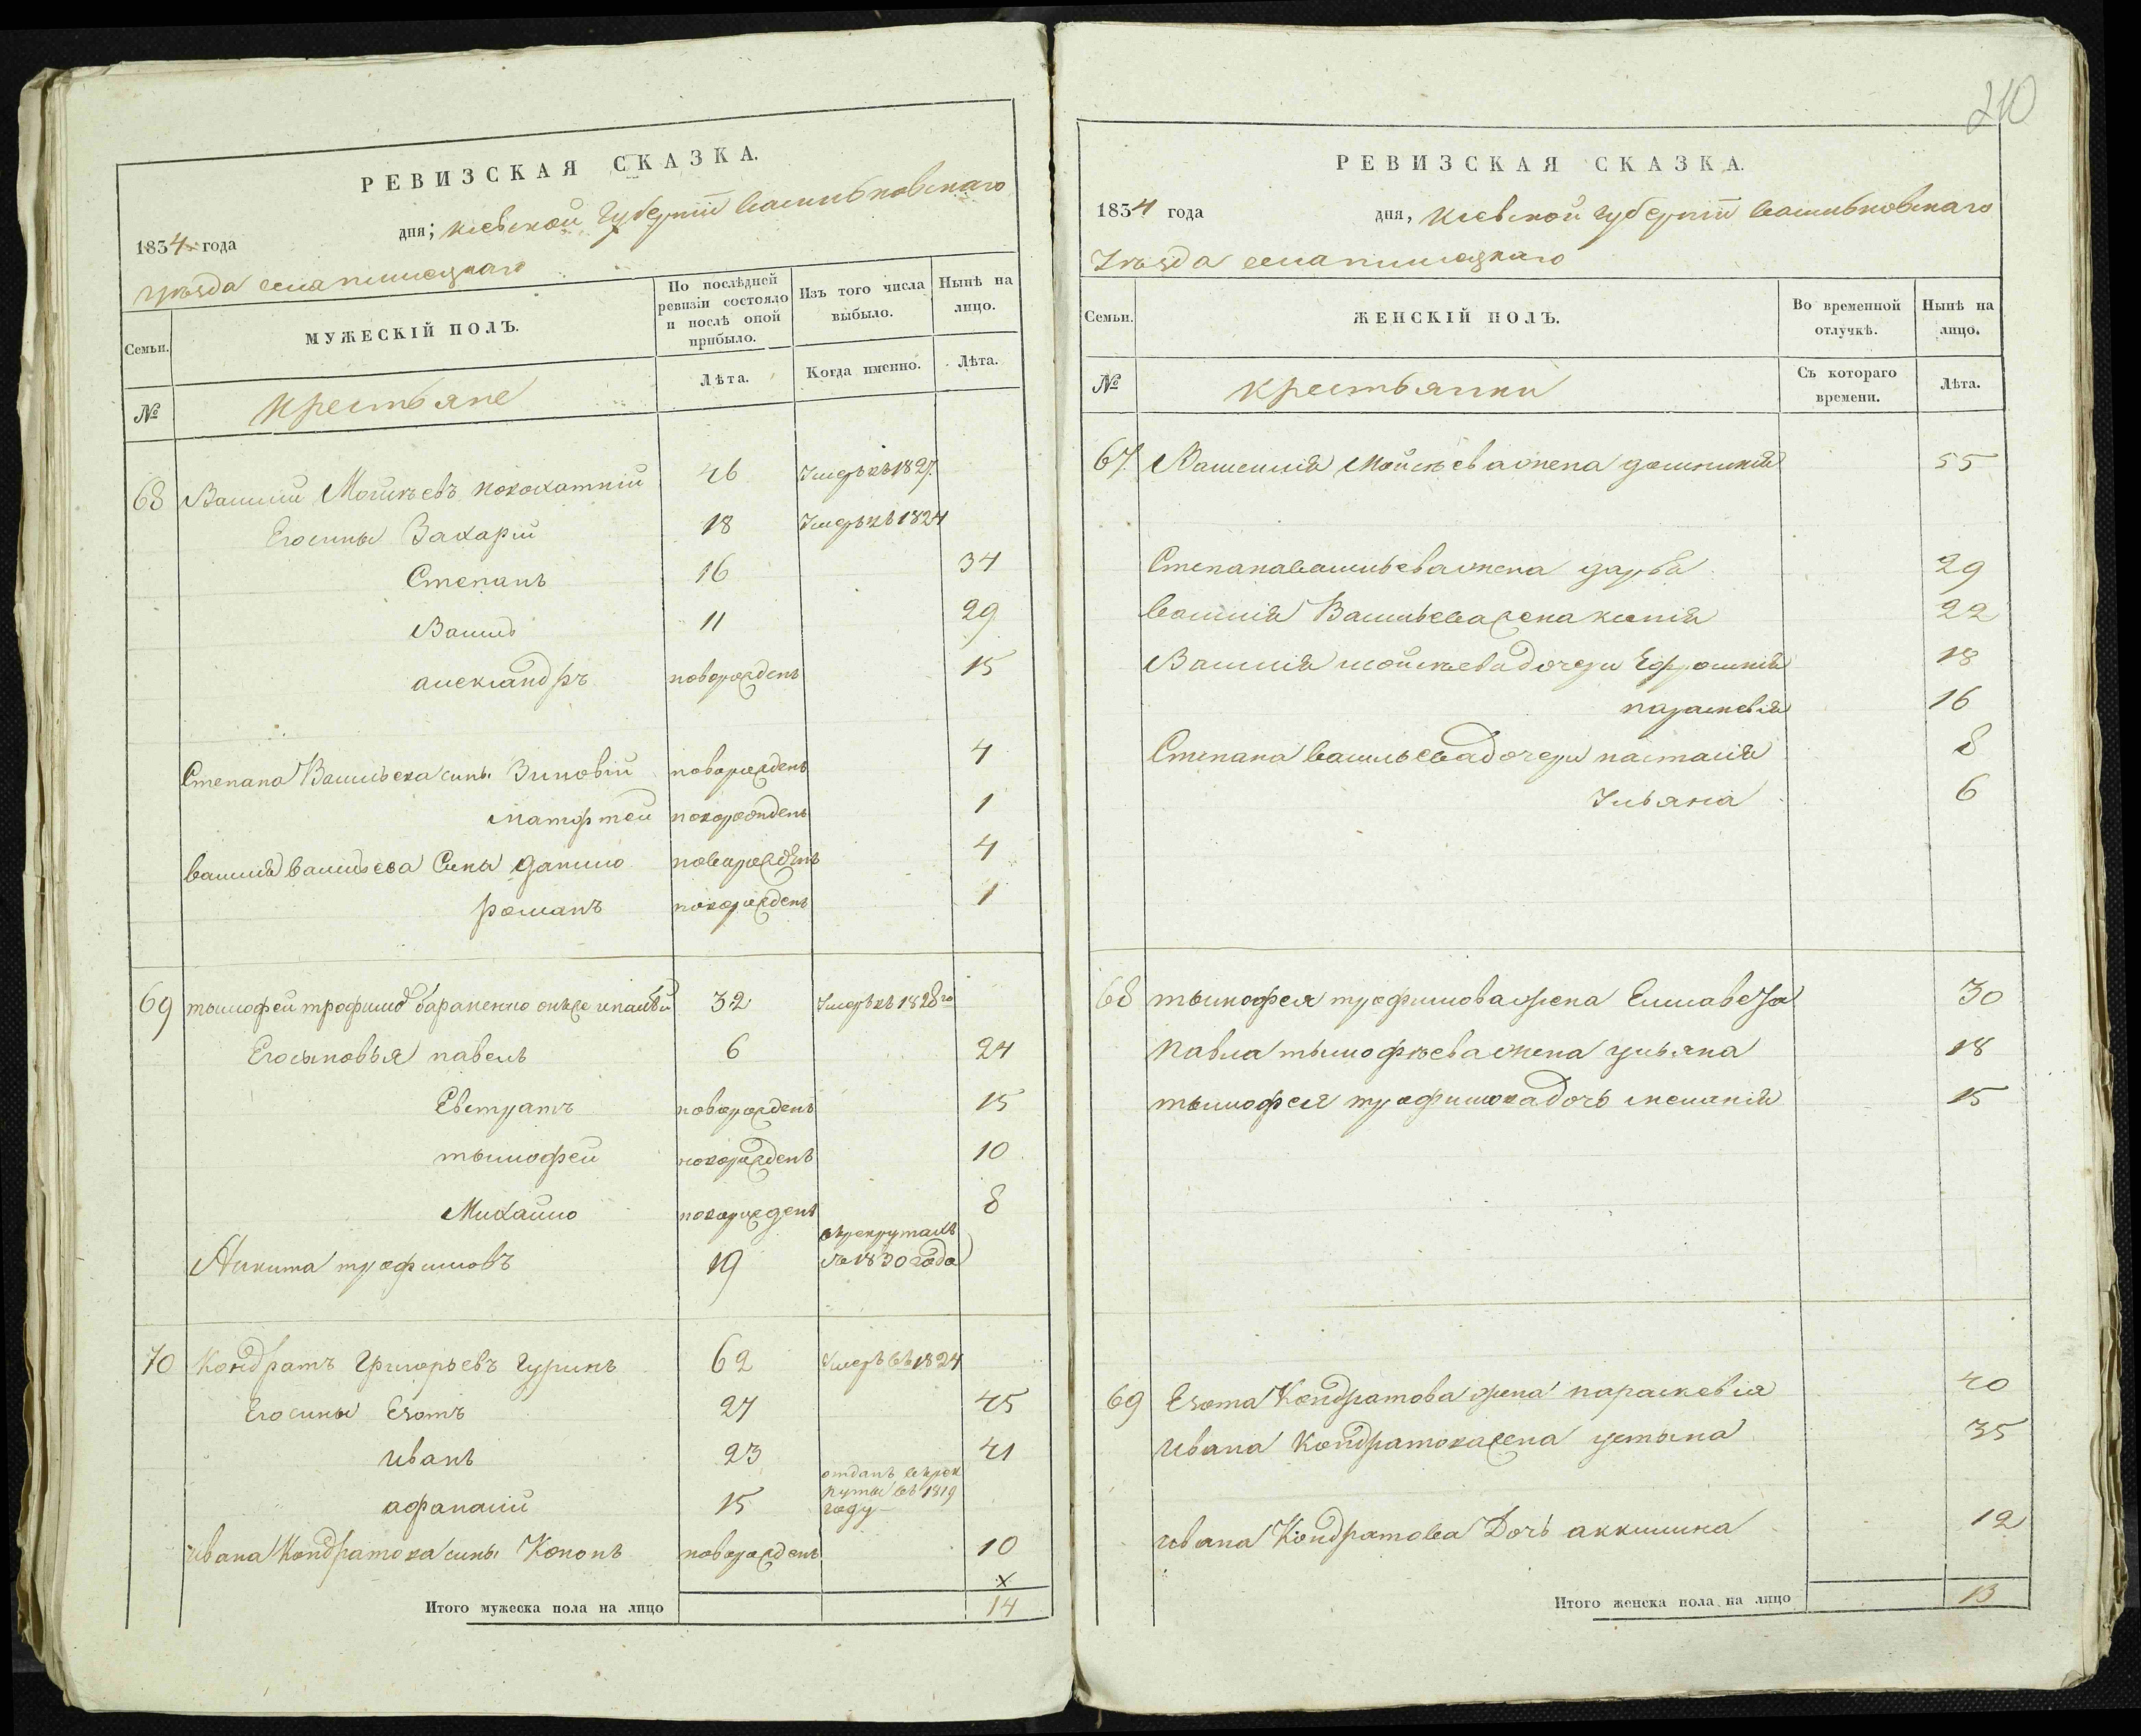 210
РЕВИЗСКАЯ СКАЗКА.
1834 года дня; Кіевской Губерніи Васильковскаго
уѣзда села пишецкаго
Семьи.
МУЖЕСКІЙ ПОЛЪ.
По послѣдней ревизіи состояло и послѣ оной прибыло.
Изъ того числа выбыло.
Нынѣ на лицо.
№
Крестьяне
Лѣта.
Когда именно.
Лѣта.
68 Василій Мойсѣевъ 46 Умеръ въ 1827.
Его сины Захарій 18 Умеръ въ 1824
Степанъ 16 34
Василь 11 29
александръ новорожденъ 15
Степана Васильева сины Зиновій новорожденъ 4
матфтей новорожденъ 1
василія васильева Сины данило новорожденъ 4
романъ новорожденъ 1
69 тымофей трофимовъ бараненко 32 Умеръ въ 1828го
Его сыновья павелъ 6 24
Евстратъ новорожденъ 15
тымофей новорожденъ 10
Михайло новорожденъ 8
Никита трофимовъ 19 в рекрутахъ съ 1830 года
70 Кондратъ Григорьевъ Гуринъ 62 Умеръ въ 1824
Его сины Изотъ 27 45
иванъ 23 41
афанасій 15 отданъ въ рек руты въ 1819 году
ивана Кондратова сины Кононъ новорожденъ 10
х
Итого мужеска пола на лицо 14
РЕВИЗСКАЯ СКАЗКА.
1834 года дня, Кіевской губерніи Васильковскаго
Уѣзда села пишецкаго
Семьи.
ЖЕНСКІЙ ПОЛЪ.
Во временной отлучкѣ.
Нынѣ на лицо.
№
Крестьянки
Съ котораго времени.
Лѣта.
67. Василія Мойсѣева жена 55
Степана васильева жена дарья 29
василія Васильева жена ксенія 22
Василія мойсѣева дочери Ефросинія 18
параскевія 16
Степана васильева дочери настасія 8
Ульяна 6
68 тымофея трофимова жена Елисавета 30
Павла тымофѣева жена ульяна 18
тымофея трофимова дочь меланія 15
69 Изота Кондратова жена параскевія 40
ивана Кондратова жена устына 35
ивана Кондратова Дочь аккилина 12
Итого женска пола на лицо 13